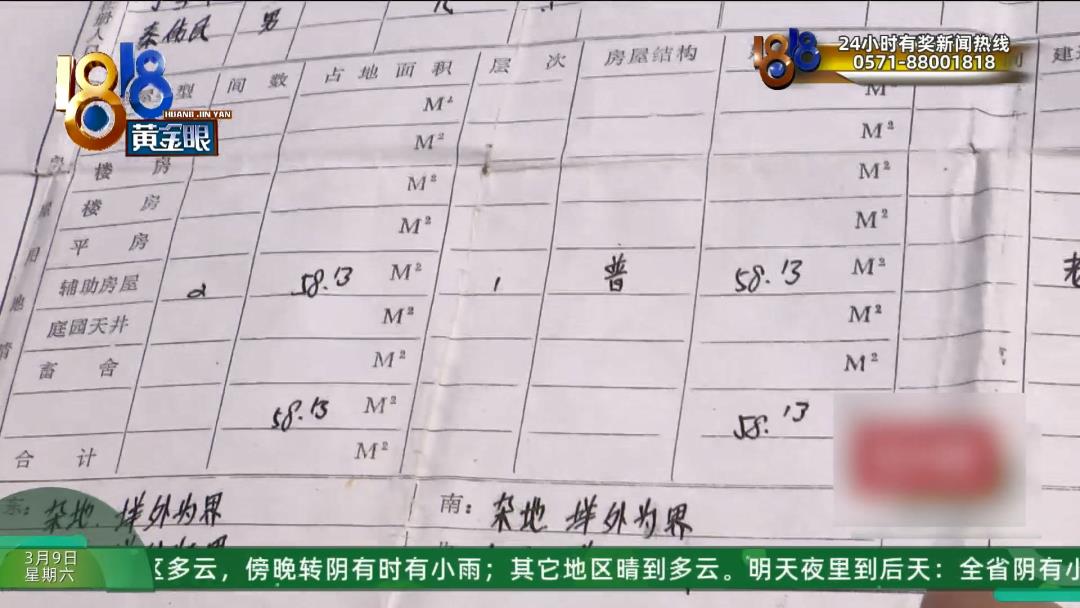 男
24小时有奖新闻热线
0571-88001818
1818
HUANG JIN YAN
黄金眼
型 间数 占地面积 层次 房屋结构
M²
M² M²
楼房 M² M²
楼房 M² M²
平房 M² M²
辅助房屋 2 58.13 M² 1 普 58.13 M²
庭园天井 M² M²
畜舍 M² M²
58.13 M² 58.13
合计 M²
东：杂地 垟外为界 南：杂地 垟外为界
3月9日
星期六
区多云，傍晚转阴有时有小雨；其它地区晴到多云。明天夜里到后天：全省阴有小